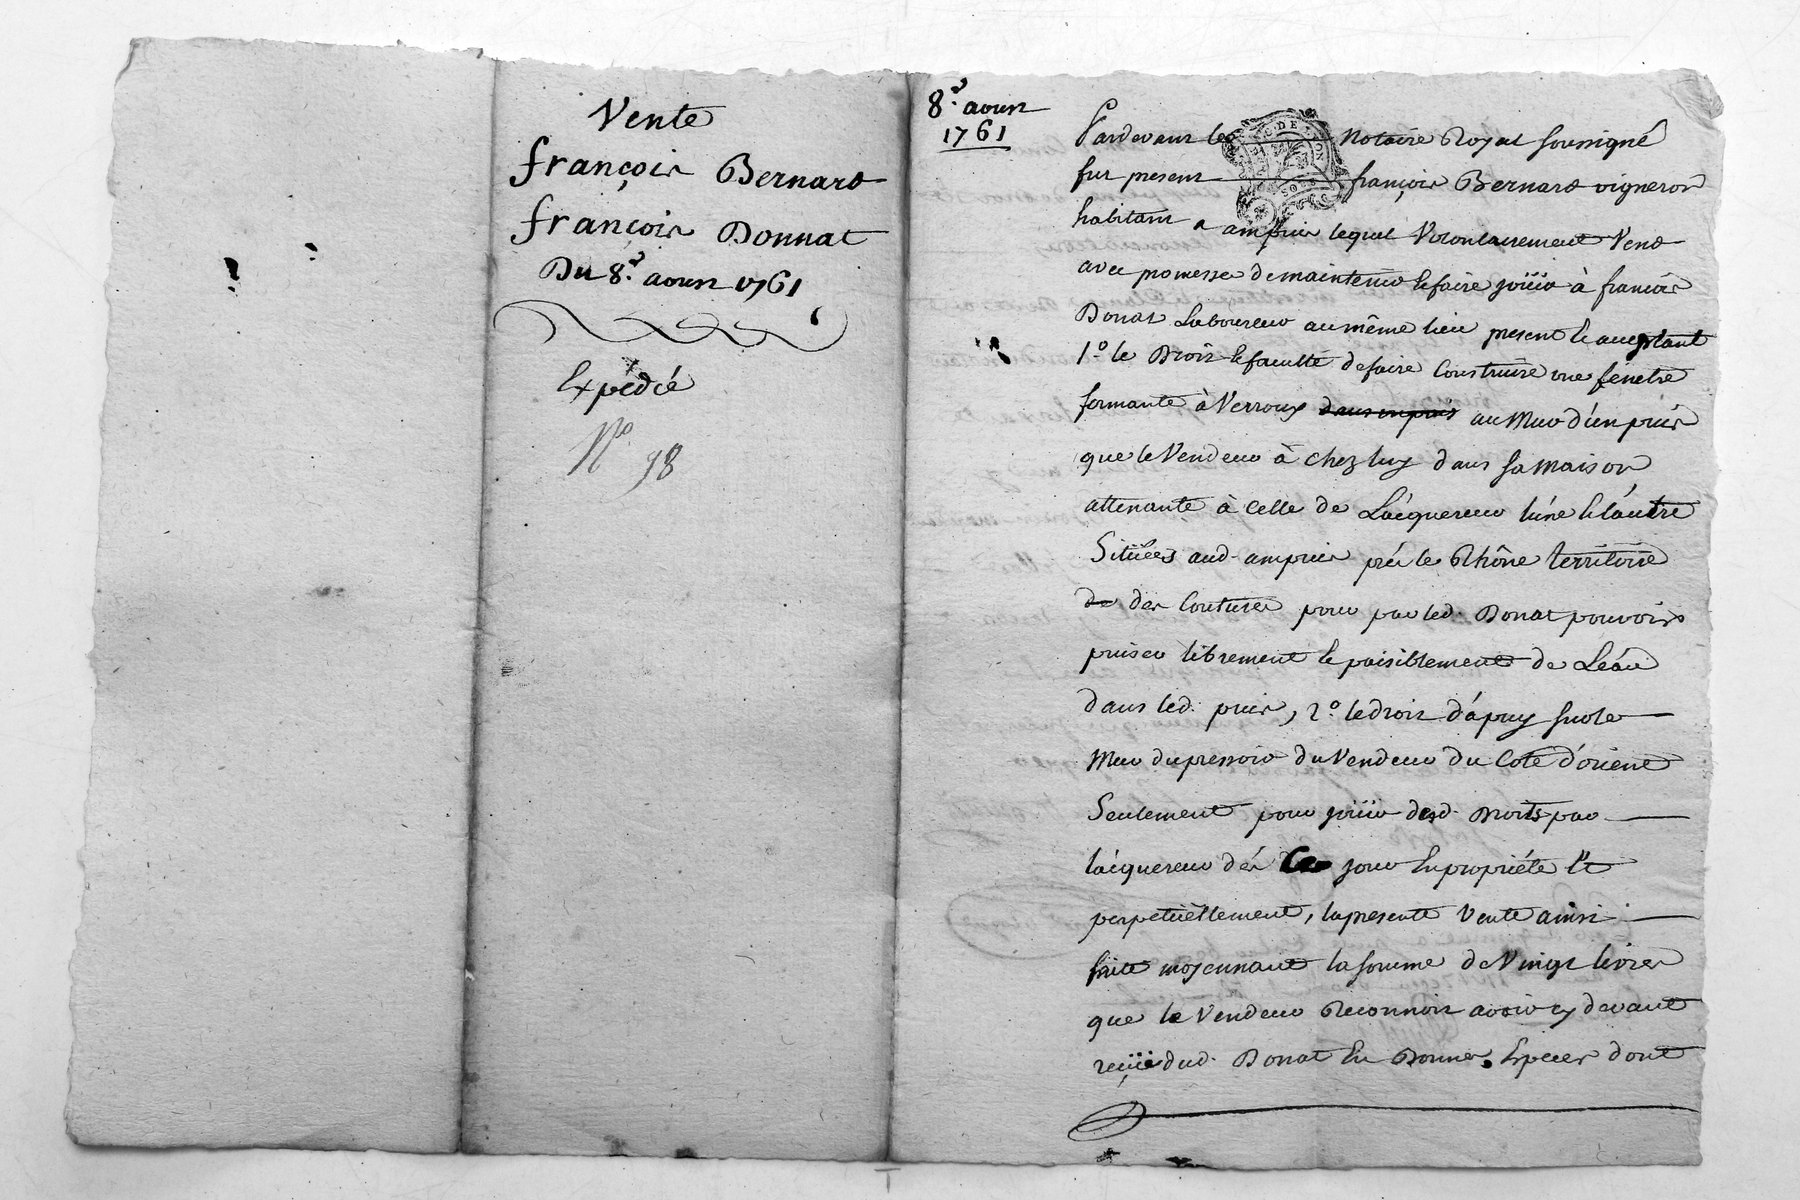 Vente
françois Bernard
françois Donnat
Du 8.e aoust 1761
Expédié
N.o 98
8.e aoust
1761
Pardevant le Notaire Royal soussigné
fut present françois Bernard vigneron
habitant a ampuis lequel Volontairement Vend
avec promesse de maintenir & faire joüir à francois
Donat Laboureur au même lieu present & acceptant
1.o le Droit & faculté de faire Construire une fénetre
formante à Verroux dans un puis au Mur d'un puis
que le Vendeur à chez luy dans sa maison
attenante à Celle de L'acquereur l'une & l'autre
Sitüées aud. ampuis prés le Rhône territoire
de des Coutures pour par led. Donat pouvoir
puiser librement & paisiblement de L'eau
dans led. puis, 2.o le droit d'apuy sur le
Mur du pressoir du Vendeur du Coté d'orient
Seulement pour joüir desd. Droits par
l'acquereur dés Ce jour En propriéte Et
perpetüellement, la presente Vente ainsi
faite moyennant la somme de Vingt livres
que le Vendeur Reconnoit avoir cy devant
reçüe dud. Donat En Bonnes Especes dont